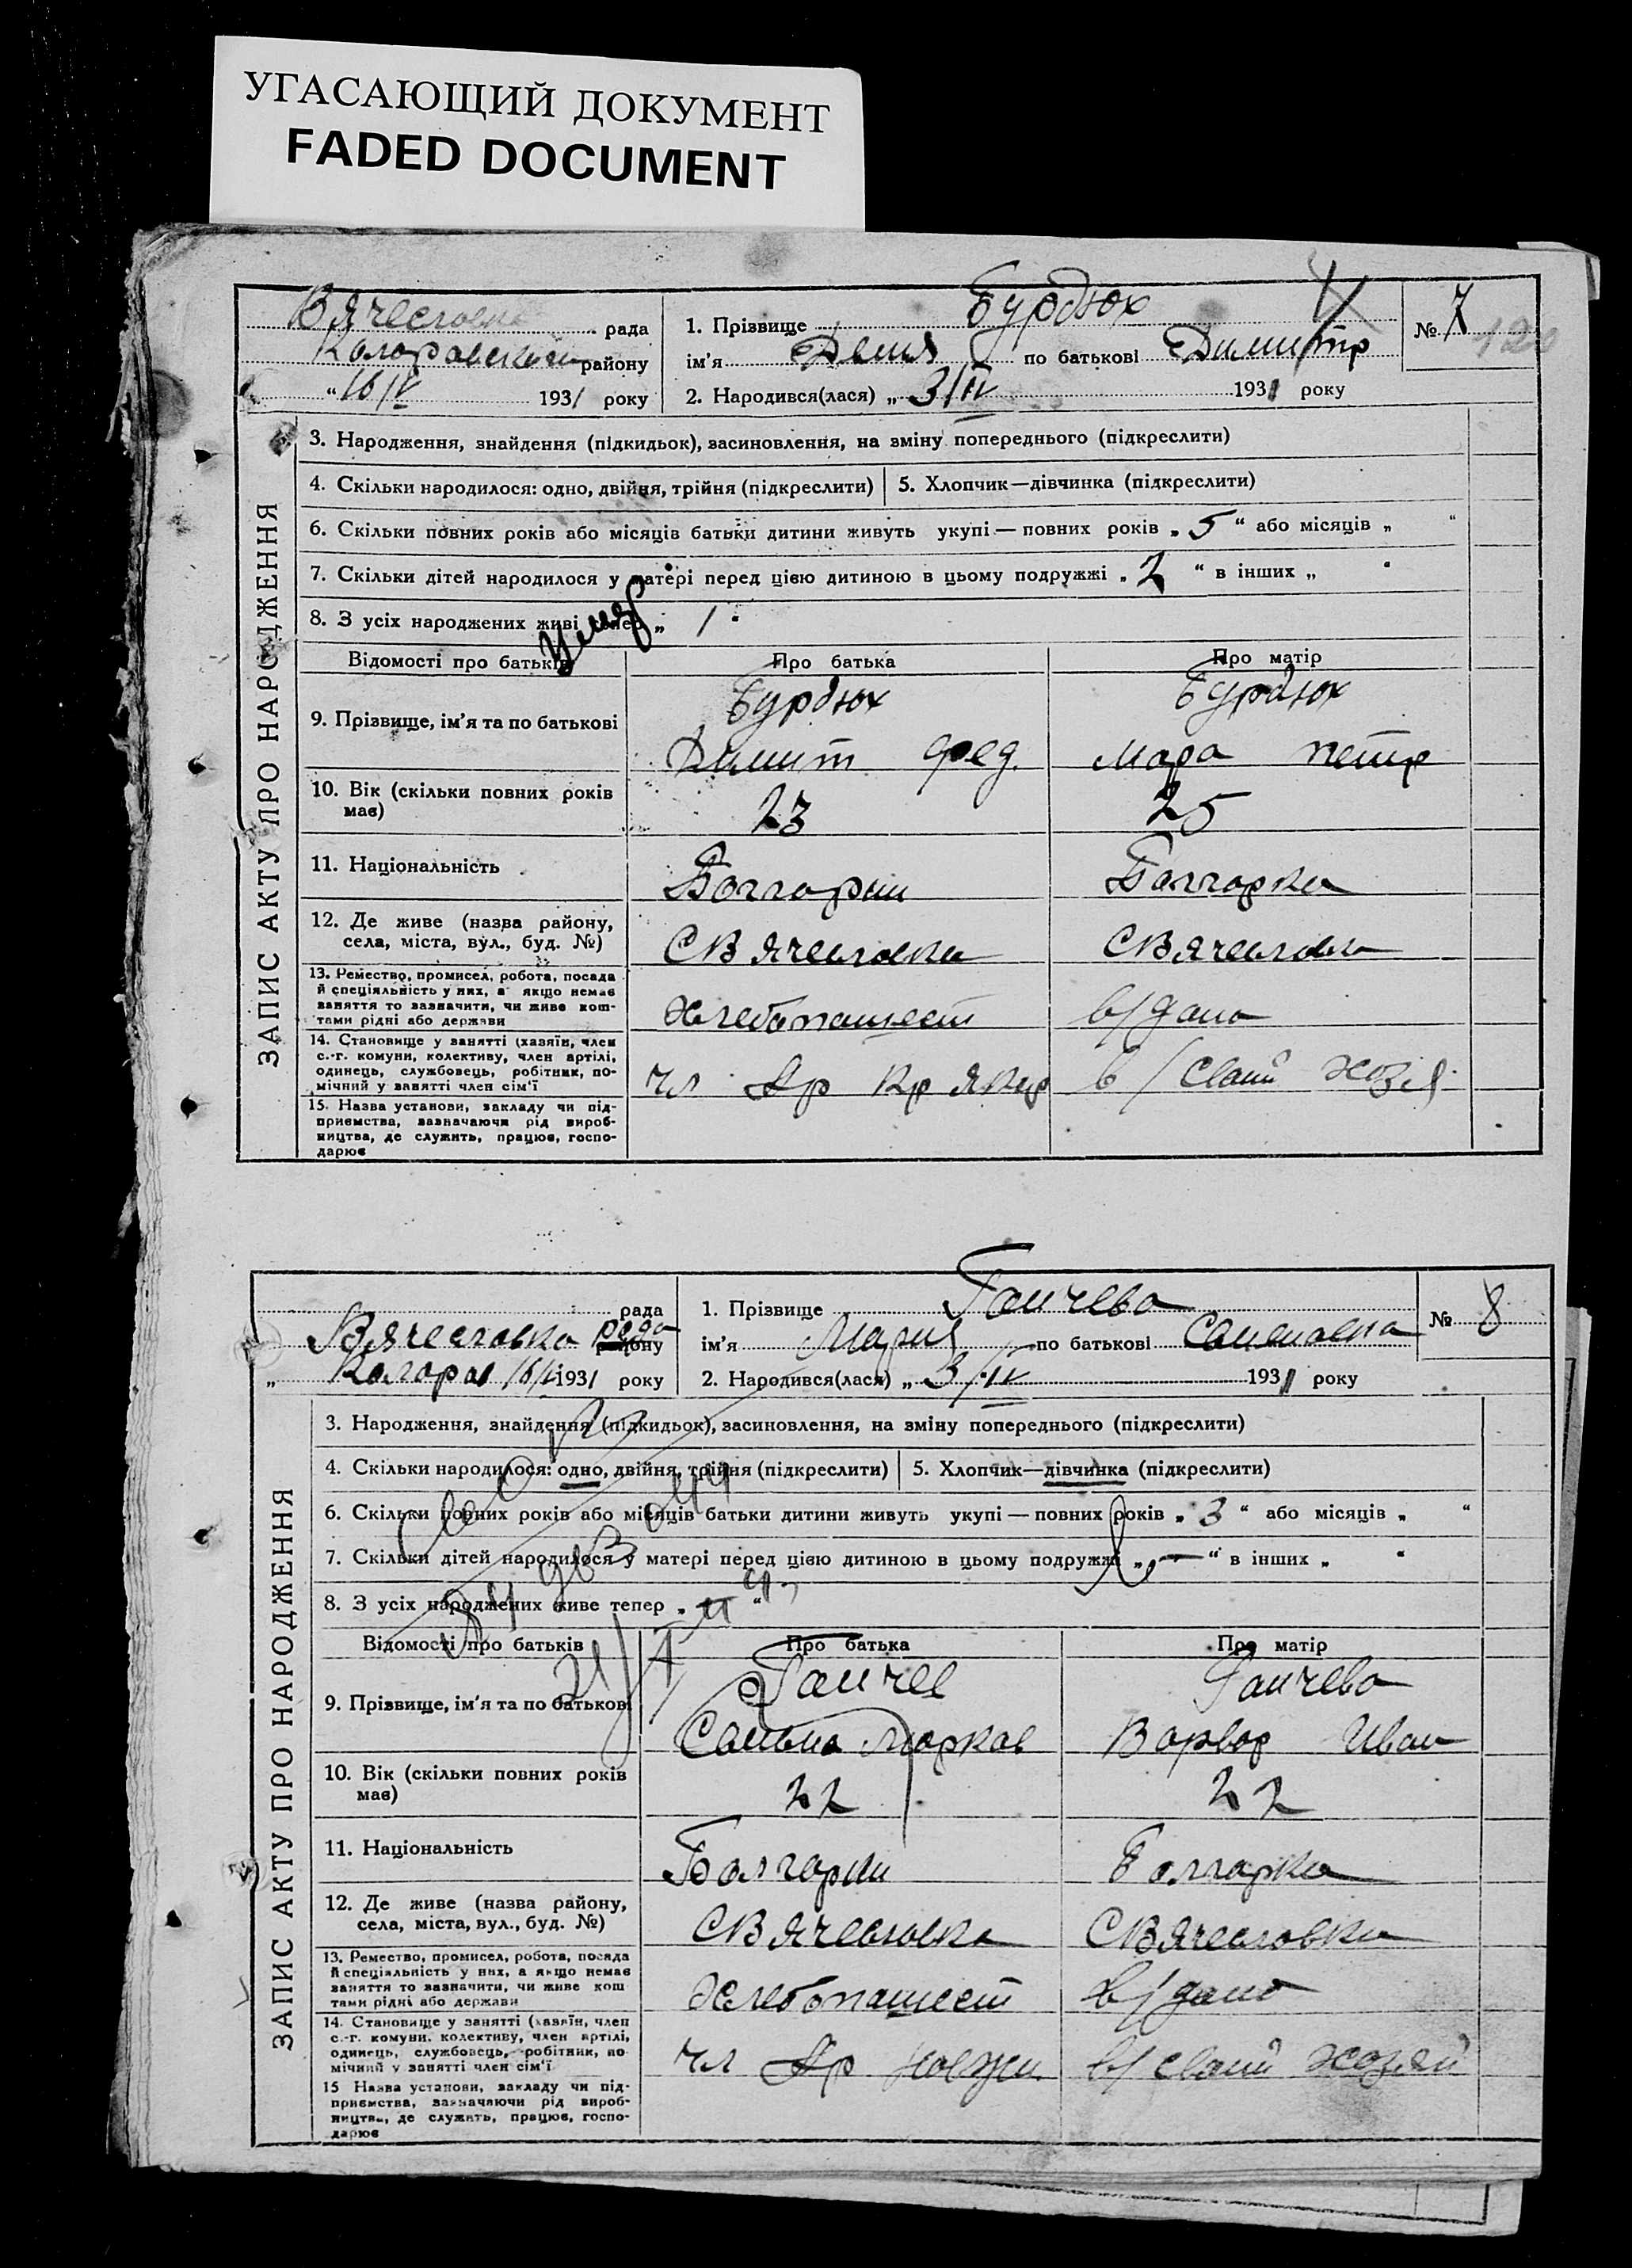 УГАСАЮЩИЙ ДОКУМЕНТ
FADED DOCUMENT
рада
району
"16/IV 1931 року
1. Прізвище Бурдюх
ім'я по батькові Димитр
2. Народився(лася) „ 3/IV 1931 року
№ 7
ЗАПИС АКТУ ПРО НАРОДЖЕННЯ
3. Народження, знайдення (підкидьок), засиновлення, на зміну попереднього (підкреслити)
4. Скільки народилося: одно, двійня, трійня (підкреслити)
5. Хлопчик—дівчинка (підкреслити)
6. Скільки повних років або місяців батьки дитини живуть укупі — повних років „ 5 “ або місяців „ “
7. Скільки дітей народилося у матері перед цією дитиною в цьому подружжі „ 2 “ в інших „ “
8. З усіх народжених живі тепер „ 1 “
умер
Відомості про батьків
Про батька
Про матір
9. Прізвище, ім'я та по батькові
Бурдюх
Димит фед.
Бурдюх
Мара петр
10. Вік (скільки повних років має)
23
25
11. Національність
Болгарин
Болгарка
12. Де живе (назва району, села, міста, вул., буд. №)
С Вячеславка
С Вячеславка
13. Ремество, промисел, робота, посада
й спеціяльність у них, а якщо немає
заняття то зазначити, чи живе кош-
тами рідні або держави
Хлебопашест
в/дома
14. Становище у занятті (хазяїн, член
с.-г. комуни, колективу, член артілі,
одинець, службовець, робітник, по-
мічний у занятті член сім'ї
чл Ар Кр
в/свaим хозяй
15. Назва установи, закладу чи під-
приємства, зазначаючи рід вироб-
ництва, де служить, працює, госпо-
дарює
рада
Вячеславка рада
району
„ 16/IV 1931 року
1. Прізвище Ганчева
ім'я Мария по батькові
2. Народився(лася) „ 3/IV 1931 року
№ 8
ЗАПИС АКТУ ПРО НАРОДЖЕННЯ
3. Народження, знайдення (підкидьок), засиновлення, на зміну попереднього (підкреслити)
4. Скільки народилося: одно, двійня, трійня (підкреслити)
5. Хлопчик—дівчинка (підкреслити)
6. Скільки повних років або місяців батьки дитини живуть укупі — повних років „ 3 “ або місяців „ “
7. Скільки дітей народилося у матері перед цією дитиною в цьому подружжі „ — “ в інших „ “
8. З усіх народжених живе тепер „ “
Відомості про батьків
Про батька
Про матір
9. Прізвище, ім'я та по батькові
Ганчев
Марков
Ганчева
Варвар Иван
10. Вік (скільки повних років має)
22
22
11. Національність
Болгарин
Болгарка
12. Де живе (назва району, села, міста, вул., буд. №)
С Вячеславка
С Вячеславка
13. Ремество, промисел, робота, посада
й спеціяльність у них, а якщо немає
заняття то зазначити, чи живе кош-
тами рідні або держави
Хлебопашест
в/дома
14. Становище у занятті (хазяїн, член
с.-г. комуни, колективу, член артілі,
одинець, службовець, робітник, по-
мічний у занятті член сім'ї
чл Ар
в/сваим хозяй
15 Назва установи, закладу чи під-
приємства, зазначаючи рід вироб-
ництва, де служить, працює, госпо-
дарює